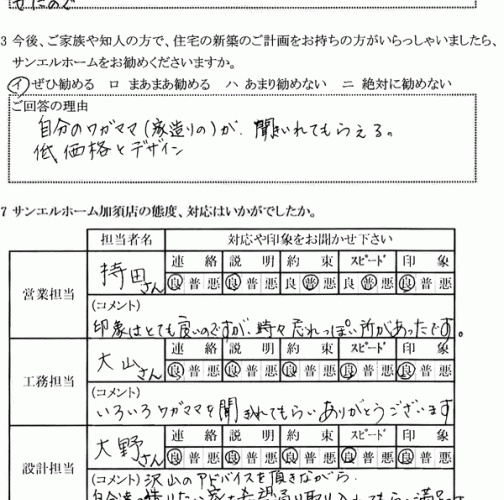 3 今後、ご家族や知人の方で、住宅の新築のご計画をお持ちの方がいらっしゃいましたら、
サンエルホームをお勧めくださいますか。
イ ぜひ勧める ロ まあまあ勧める ハ あまり勧めない ニ 絶対に勧めない
ご回答の理由
自分のワガママ(家造りの)が、聞きいれてもらえる。
低価格とデザイン
7 サンエルホーム加須店の態度、対応はいかがでしたか。
担当者名 対応や印象をお聞かせ下さい
営業担当 持田さん
連絡 説明 約束 スピード 印象
良 普 悪 良 普 悪 良 普 悪 良 普 悪 良 普 悪
(コメント)
印象はとても良いのですが、時々忘れっぽい所があったです。
工務担当 大山さん
連絡 説明 約束 スピード 印象
良 普 悪 良 普 悪 良 普 悪 良 普 悪 良 普 悪
(コメント)
いろいろワガママを聞き入れてもらいありがとうございます
設計担当 大野さん
連絡 説明 約束 スピード 印象
良 普 悪 良 普 悪 良 普 悪 良 普 悪 良 普 悪
(コメント) 沢山のアドバイスを頂きながら、